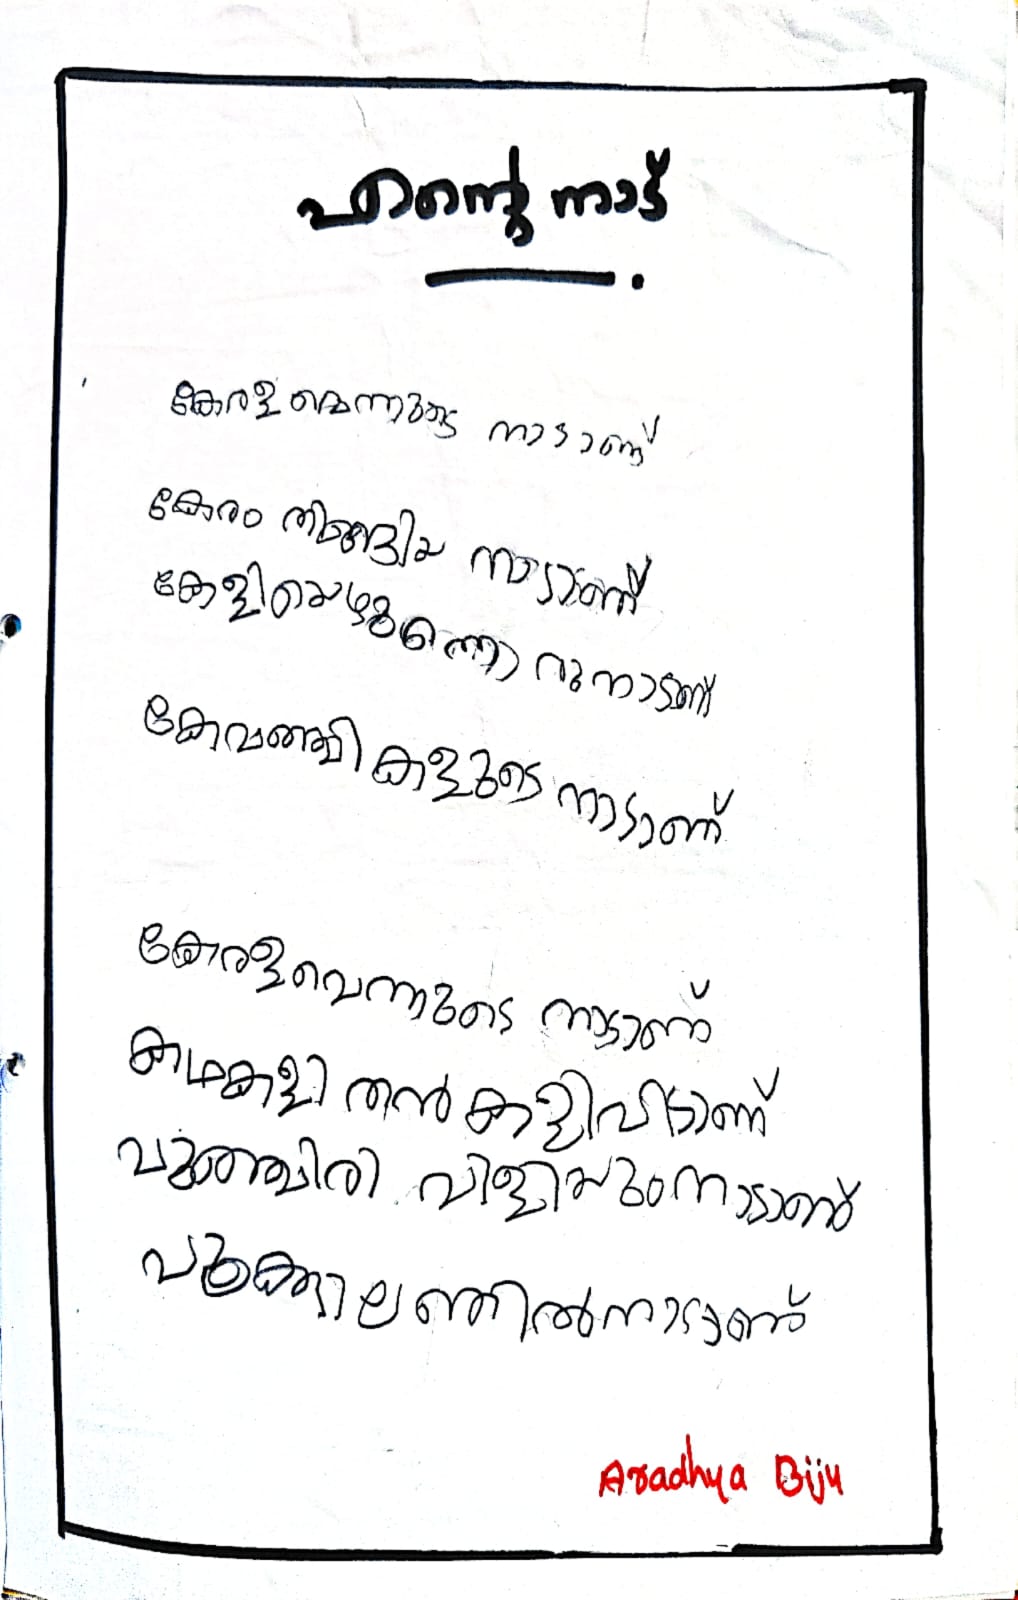 എന്റെ നാട്
കേരളമെന്നുടെ നാടാണ്
കേരം തിങ്ങിയ നാടാണ്
കേളിയെഴുന്നൊരുനാടാണ്
കേവഞ്ചികളുടെ നാടാണ്
കേരളവെന്നുടെ നാടാണ്
കഥകളി തൻ കളിവിടാണ്
പുഞ്ചിരി വിളിയുംനാടാണ്
Aradhya Biju